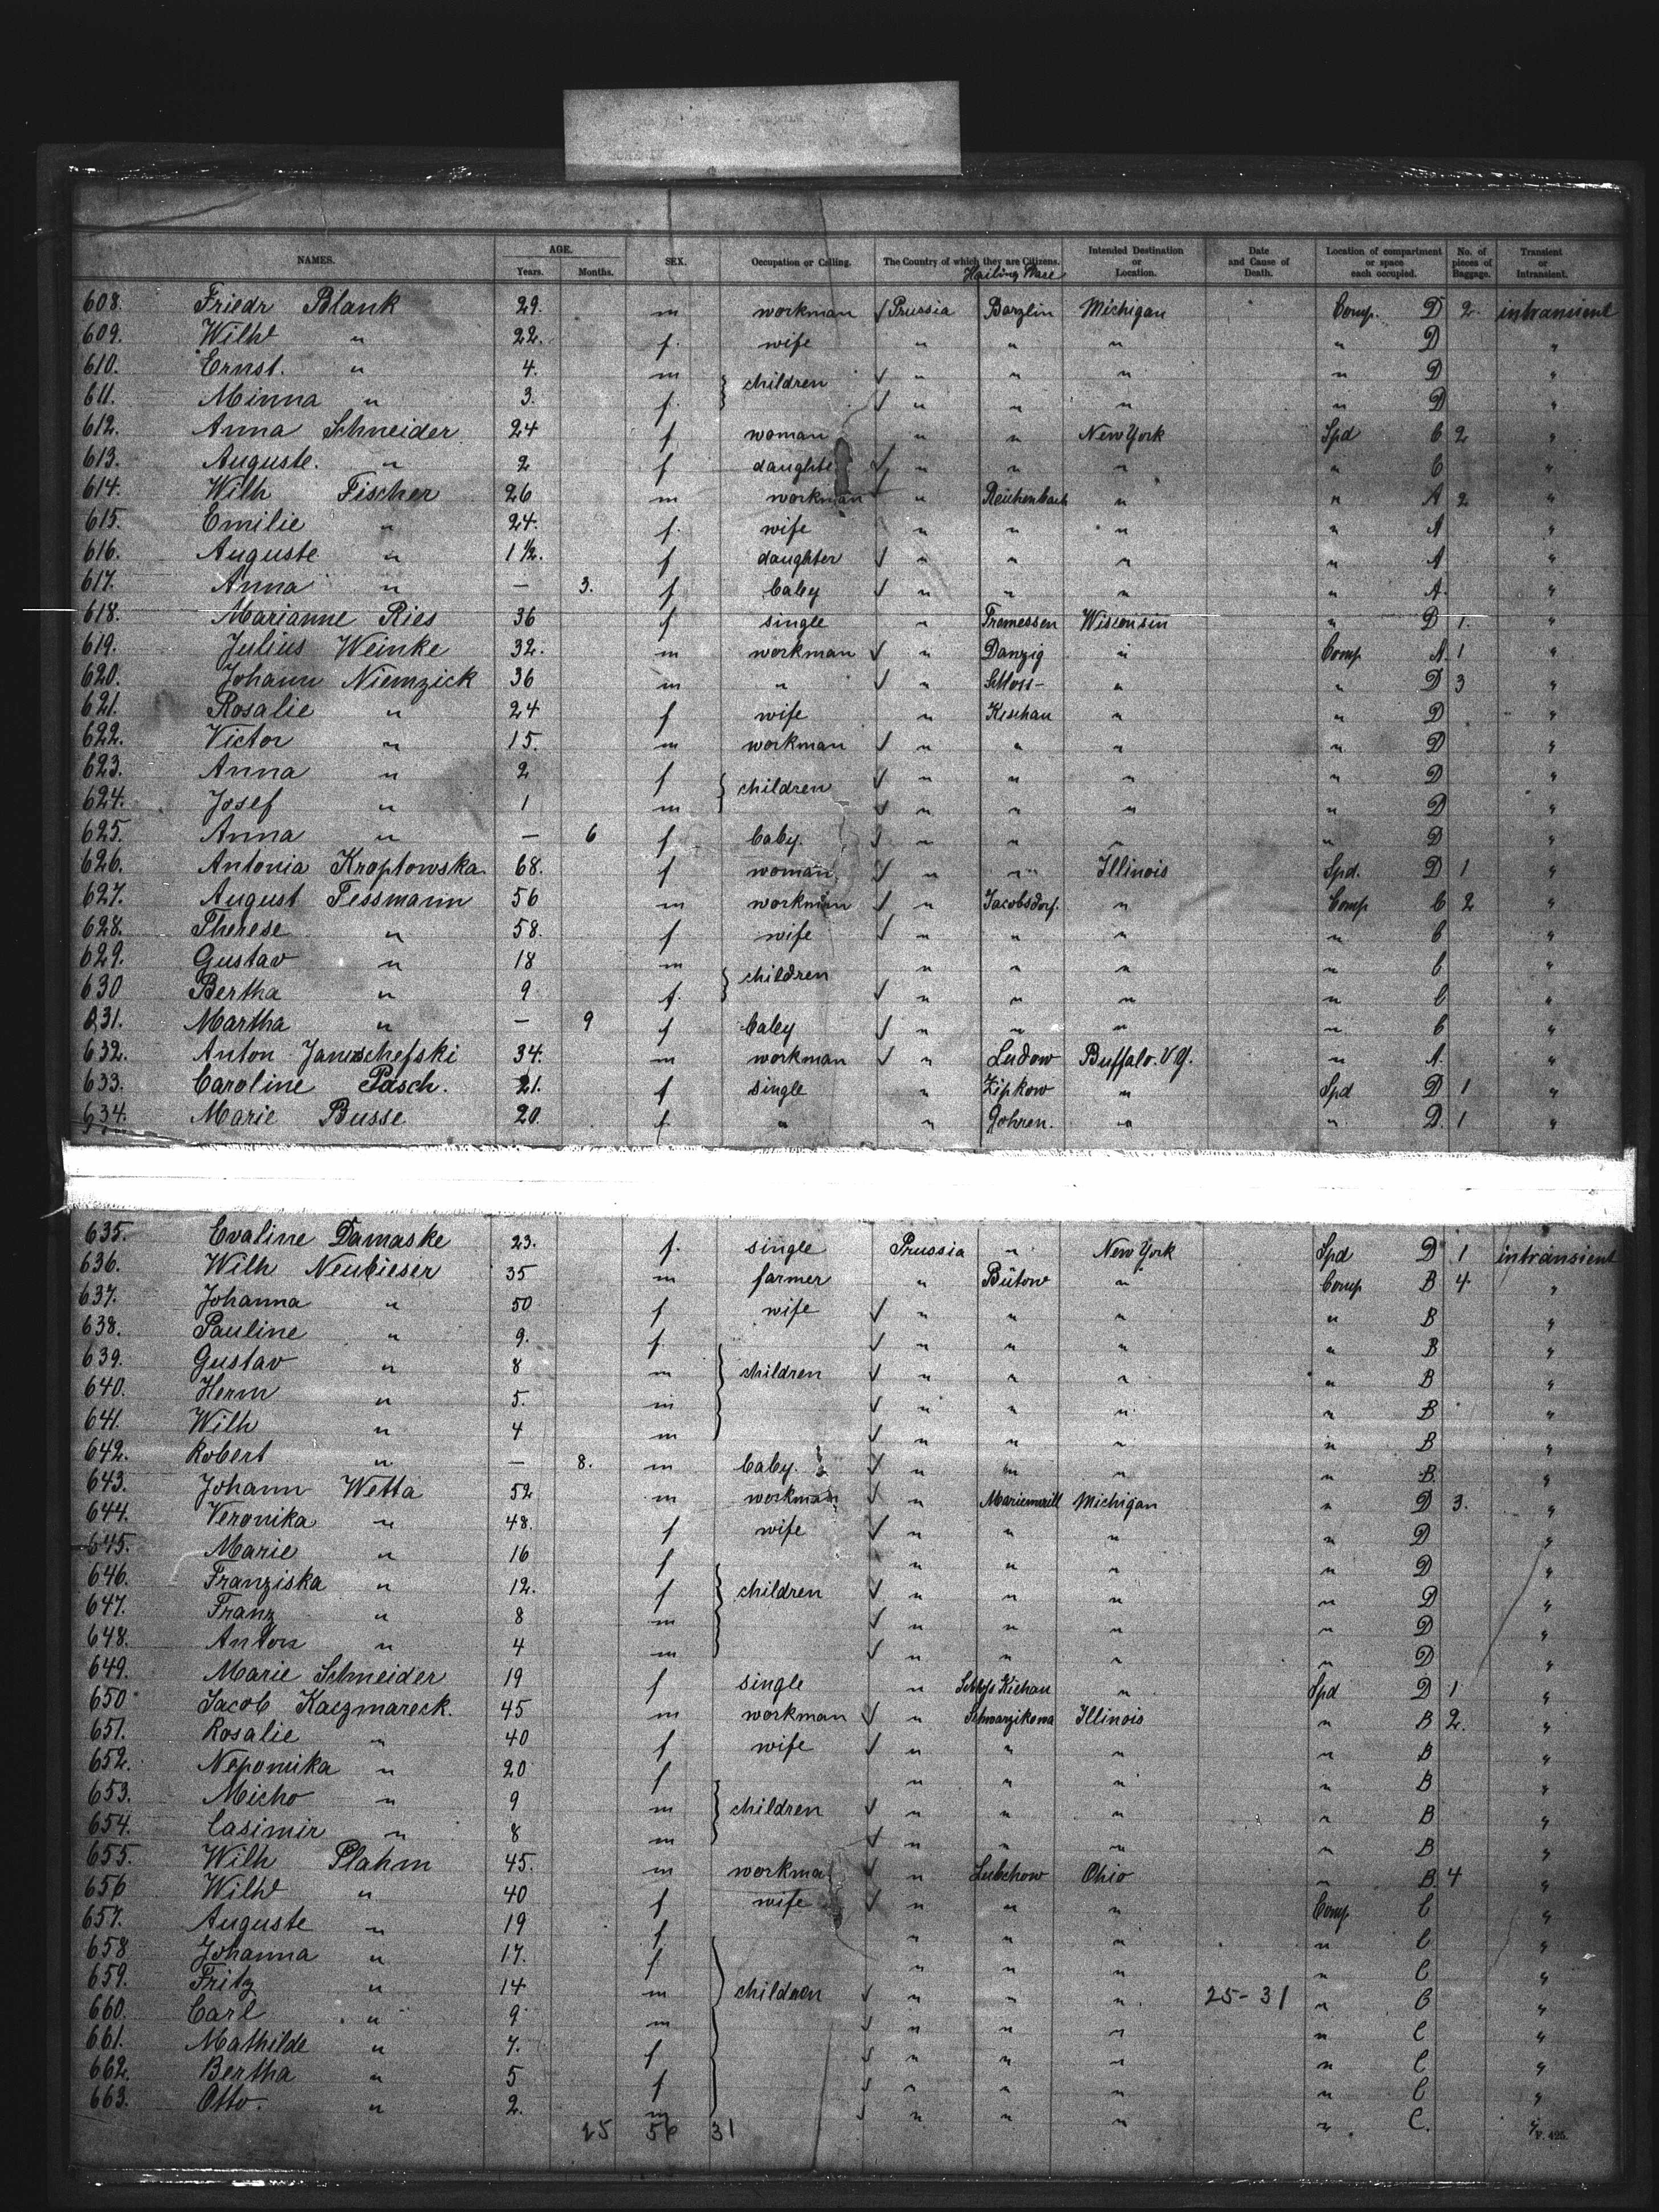 NAMES. AGE. Years. Months. SEX. Occupation or Calling. The Country of which they are Citizens. Hailing Place Intended Destination or Location. Date and Cause of Death. Location of compartment or space each occupied. No. of pieces of Baggage. Transient or Intransient.
608. Friedr Blank 29. m workman √ Prussia Barzlin Michigan Comp. D 2. intransient
609. Wilhe " 22. f. wife " " " " D "
610. Ernst. " 4. m } children √ " " " " D "
611. Minna " 3. f. √ " " " " D "
612. Anna Schneider 24 f woman " " New York Spd C 2 "
613. Auguste. " 2 f daughter √ " " " " C "
614. Wilh Fischer 26 m workman √ " Reichenbach " " A 2 "
615. Emilie " 24. f. wife " " " " A "
616. Auguste " 1 1/2. f daughter √ " " " " A "
617. Anna " — 3. f baby √ " " " " A. "
618. Marianne Ries 36 f single " Tremessen Wisconsin " D 1. "
619. Julius Weinke 32. m workman √ " Danzig " Comp A. 1 "
620. Johann Niemzick 36 m " √ " Schloss- " " D 3 "
621. Rosalie " 24 f wife " Kischau " " D "
622. Victor " 15. m workman √ " " " " D "
623. Anna " 2 f } children √ " " " " D "
624. Josef " 1 m √ " " " " D "
625. Anna " — 6 f baby. √ " " " " D "
626. Antonia Kroptowska 68. f woman √ " " Illinois Spd. D 1 "
627. August Tessmann 56 m workman √ " Jacobsdorf. " Comp C 2 "
628. Therese " 58. f wife √ " " " " C "
629. Gustav " 18 m } children " " " " C "
630 Bertha " 9 f. √ " " " " C "
631. Martha " — 9 f baby √ " " " " C "
632. Anton Januschefski 34. m workman √ " Ludow Buffalo. N.Y. " A. "
633. Caroline Pasch. 21. f single " Zipkow " Spd D 1 "
634. Marie Busse 20. f. " " Gohren. " " D. 1 "
635. Evaline Damaske 23. f. single Prussia " New York Spd D 1 intransient
636. Wilh Neubieser 35 m farmer " Bütow " Comp B 4 "
637. Johanna " 50 f wife √ " " " " B "
638. Pauline " 9. f. √ " " " " B "
639. Gustav " 8 m } children √ " " " " B "
640. Herm " 5. m √ " " " " B "
641. Wilh " 4 m √ " " " " B "
642. Robert " — 8. m baby. √ " " " " B. "
643. Johann Wetta 52 m workman √ " Michigan " D 3. "
644. Veronika " 48. f wife √ " " " " D "
645. Marie " 16 f " " " " D "
646. Franziska " 12. f } children √ " " " " D "
647. Franz " 8 m √ " " " " D "
648. Anton " 4 m √ " " " " D "
649. Marie Schneider 19 f single " Schloss Kichau " Spd D 1 "
650 Jacob Kaczmareck. 45 m workman √ " Schwarzikowa Illinois " B 2. "
651. Rosalie " 40 f wife √ " " " " B "
652. Nepomika " 20 f " " " " B "
653. Micho " 9 m } children √ " " " " B "
654. Casimir " 8 m √ " " " " B "
655. Wilh Plahm 45. m workman √ " Lubchow Ohio " B. 4 "
656 Wilhe " 40 f wife √ " " " Comp C "
657. Auguste " 19 f " " " " C "
658 Johanna " 17. f " " " " C "
659. Fritz " 14 m } children √ " " " 25-31 " C "
660. Carl " 9 m √ " " " " C "
661. Mathilde " 7. f √ " " " " C "
662. Bertha " 5 f √ " " " " C "
663. Otto. " 2. m √ " " " " C. "
25 56 31
F. 425.